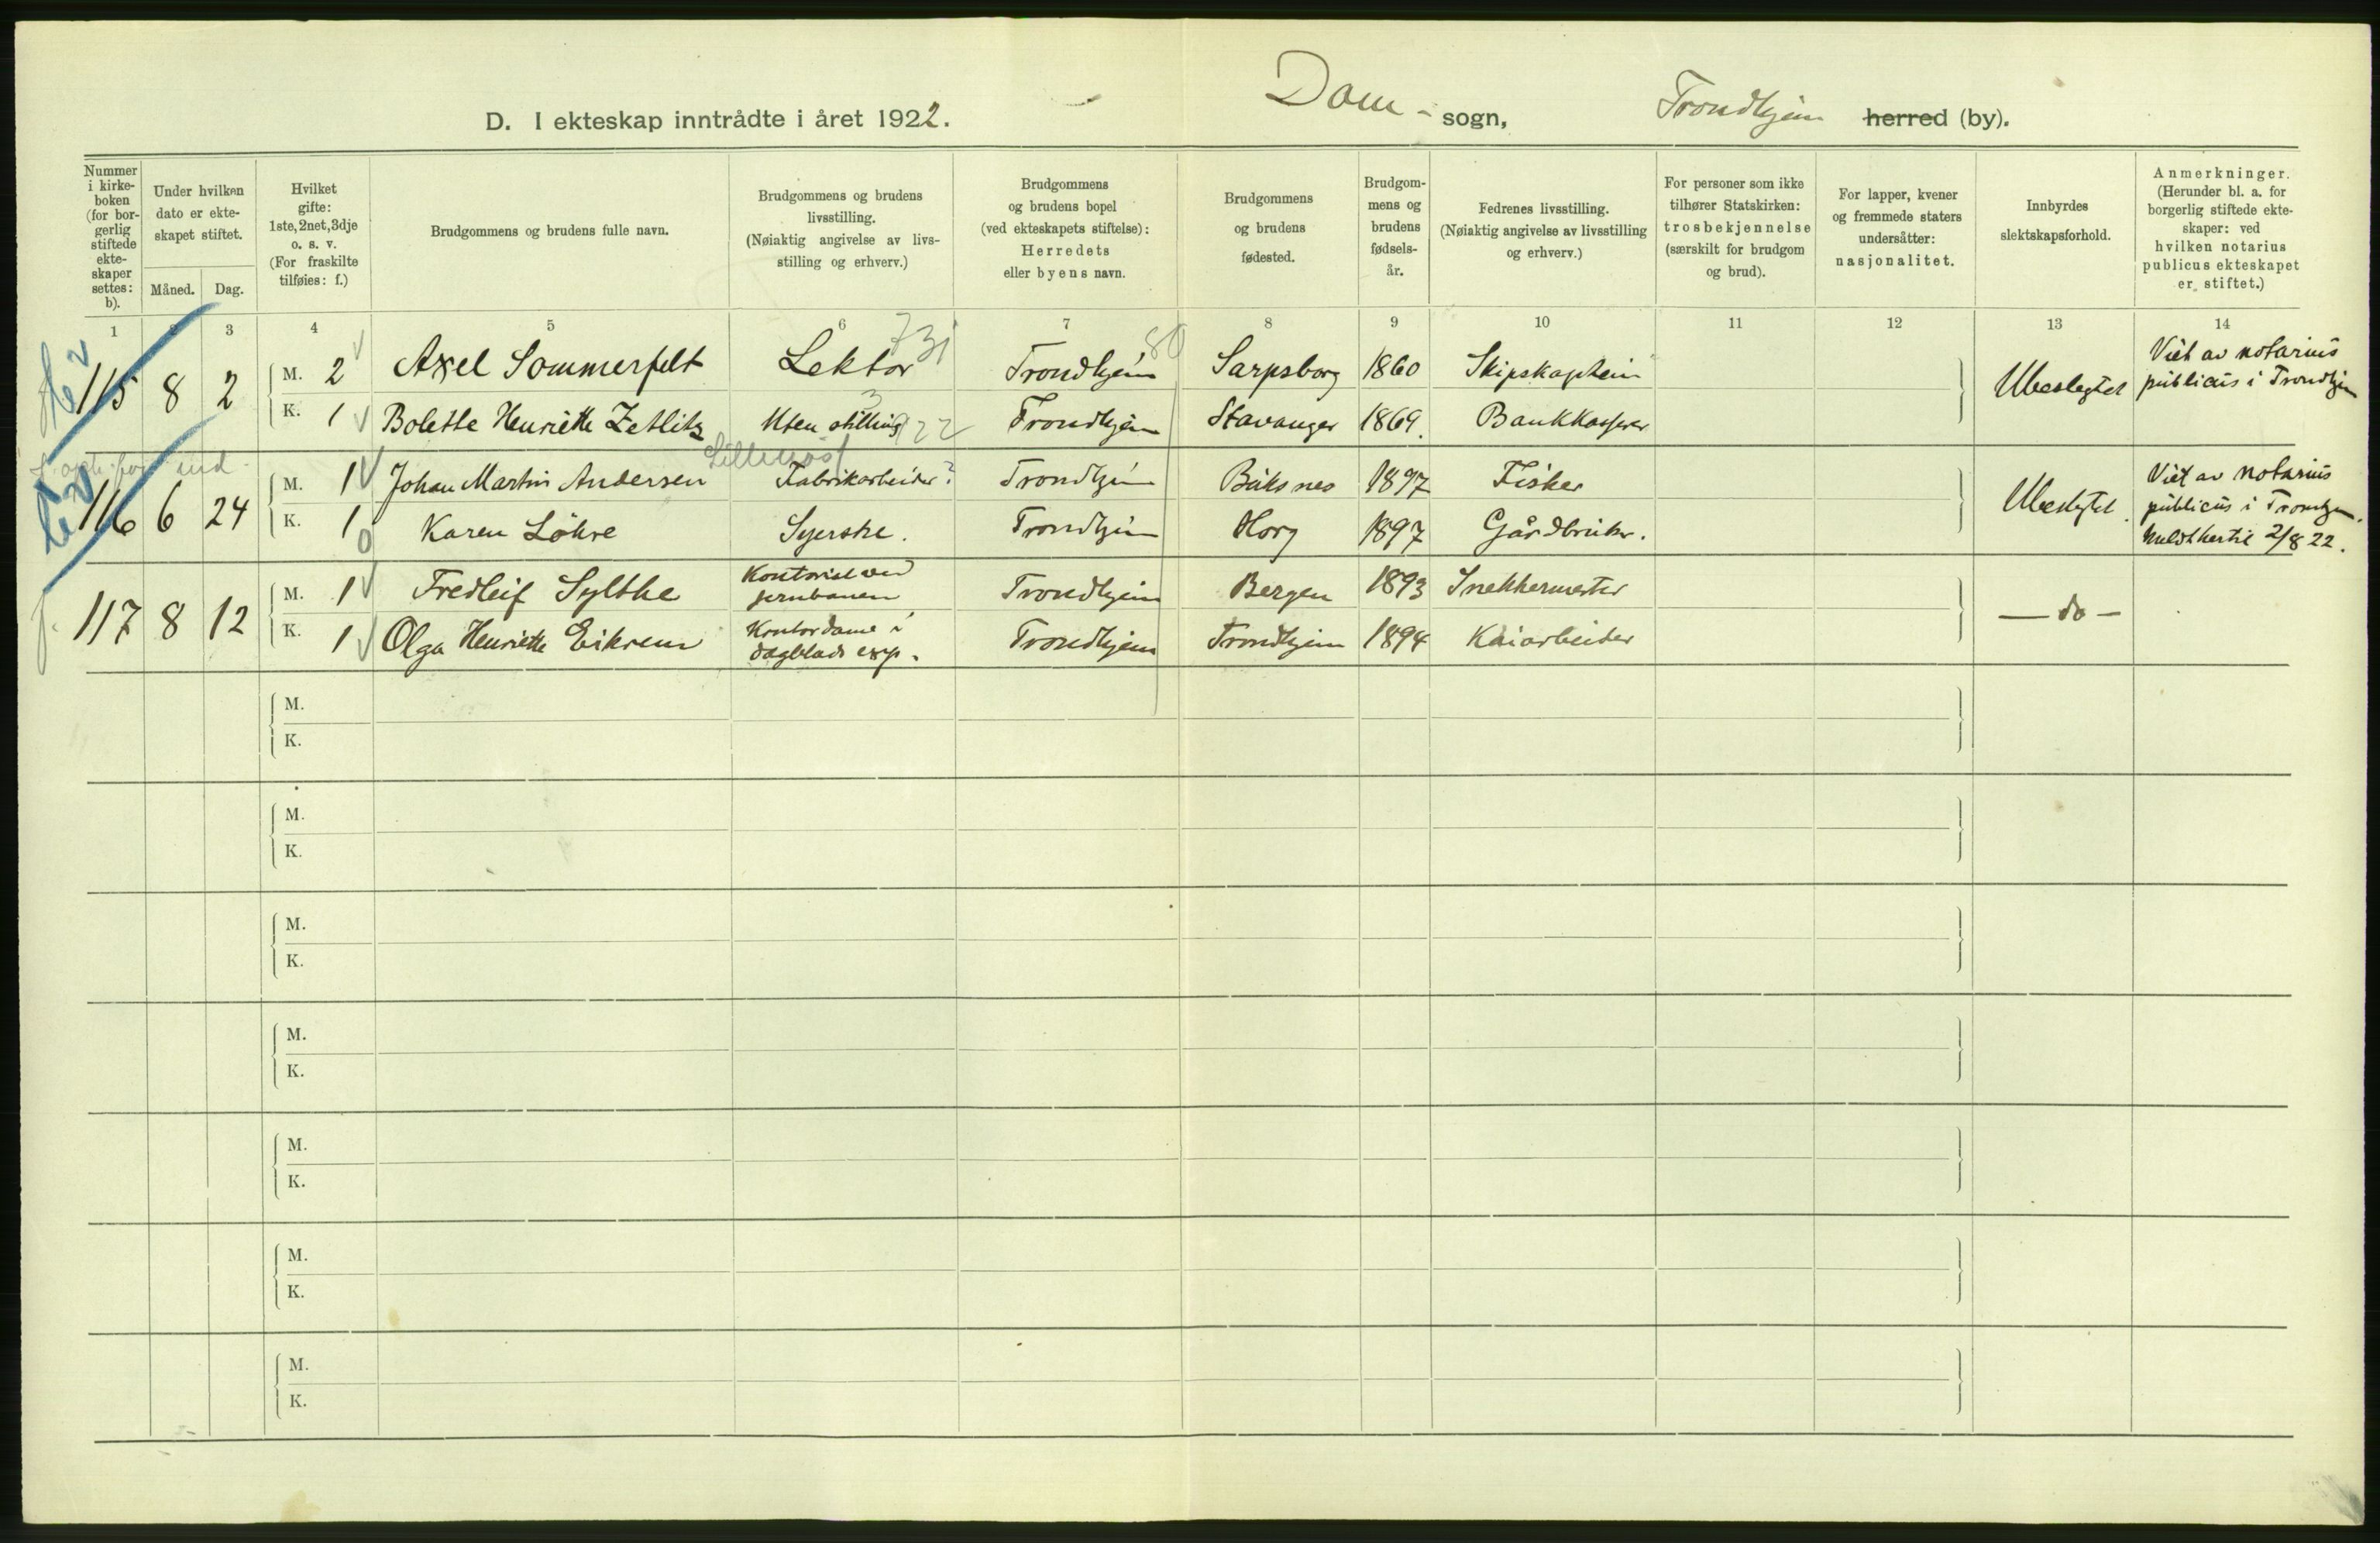 D. I ekteskap inntrådte i året 1922.
Dom - sogn,
Trondhjem herred (by).
Nummer i kirkeboken (for borgerlig stiftede ekteskaper settes: b).
Under hvilken dato er ekteskapet stiftet.
Måned. Dag.
Hvilket gifte: 1ste, 2net, 3dje o. s. v. (For fraskilte tilføies: f.)
Brudgommens og brudens fulle navn.
Brudgommens og brudens livsstilling. (Nøiaktig angivelse av livsstilling og erhverv.)
Brudgommens og brudens bopel (ved ekteskapets stiftelse): Herredets eller byens navn.
Brudgommens og brudens fødested.
Brudgommens og brudens fødselsår.
Fedrenes livsstilling. (Nøiaktig angivelse av livsstilling og erhverv.)
For personer som ikke tilhører Statskirken: trosbekjennelse (særskilt for brudgom og brud).
For lapper, kvener og fremmede staters undersåtter: nasjonalitet.
Innbyrdes slektskapsforhold.
Anmerkninger. (Herunder bl. a. for borgerlig stiftede ekteskaper: ved hvilken notarius publicus ekteskapet er stiftet.)
1 2 3 4 5 6 7 8 9 10 11 12 13 14
731 80
115 8 2 M. 2 Axel Sommerfelt Lektor Trondhjem Sarpsborg 1860 Skipskaptein Ubeslegtet Viet av notarius publicus i Trondhjem
K. 1 Bolette Henriette Zetlitz Uten stilling 3 922 Trondhjem Stavanger 1869. Bankkasserer
116 6 24 M. 1 Johan Martin Andersen Fabrikarbeider? Trondhjem Buksnes 1897 Fisker Ubeslegtet. Viet av notarius publicus i Trondhjem.
K. 1 0 Karen Löhre Syerske. Trondhjem Horg 1897 Gårdbruker. 2/8 22.
117 8 12 M. 1 Fredleif Sylthe Kontorist ved jernbanen Trondhjem Bergen 1893 Snekkermester — do —
K. 1 Olga Henriette Eikrem Kontordame i dagblads exp. Trondhjem Trondhjem 1894 Kaiarbeider
M.
K.
M.
K.
M.
K.
M.
K.
M.
K.
M.
K.
M.
K.